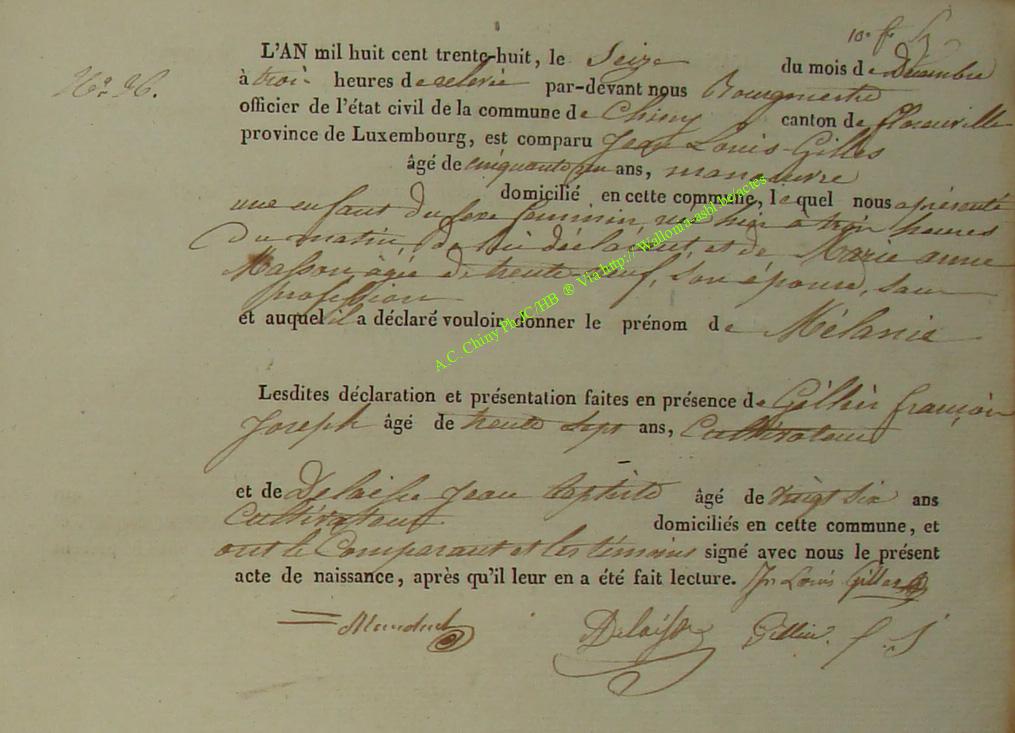 10e f. S
L'AN mil huit cent trente-huit, le Seize du mois de Décembre
No 26.
à trois heures de relevée par-devant nous Bourgmestre
officier de l'état civil de la commune de Chiny canton de florenville
province de Luxembourg, est comparu Jean Louis Gilles
âgé de cinquante un ans, manœuvre
domicilié en cette commune, lequel nous a présenté
une enfant du sexe féminin, née hier à trois heures
du matin, de lui déclarant et de Marie anne
Masson, âgée de trente neuf, son épouse, sans
profession
et auquel il a déclaré vouloir donner le prénom de Mélanie
Lesdites déclaration et présentation faites en présence de Gillin françois
Joseph âgé de trente sept ans, Cultivateur
et de Delaisse Jean Baptiste âgé de vingt six ans
Cultivateur domiciliés en cette commune, et
ont le Comparant et les témoins signé avec nous le présent
acte de naissance, après qu'il leur en a été fait lecture. Jn Louis Gilles
Delaisse Gillin f. J
A.C. Chiny Ph JC/HB ® Via http://Walloma-asbl.be/actes